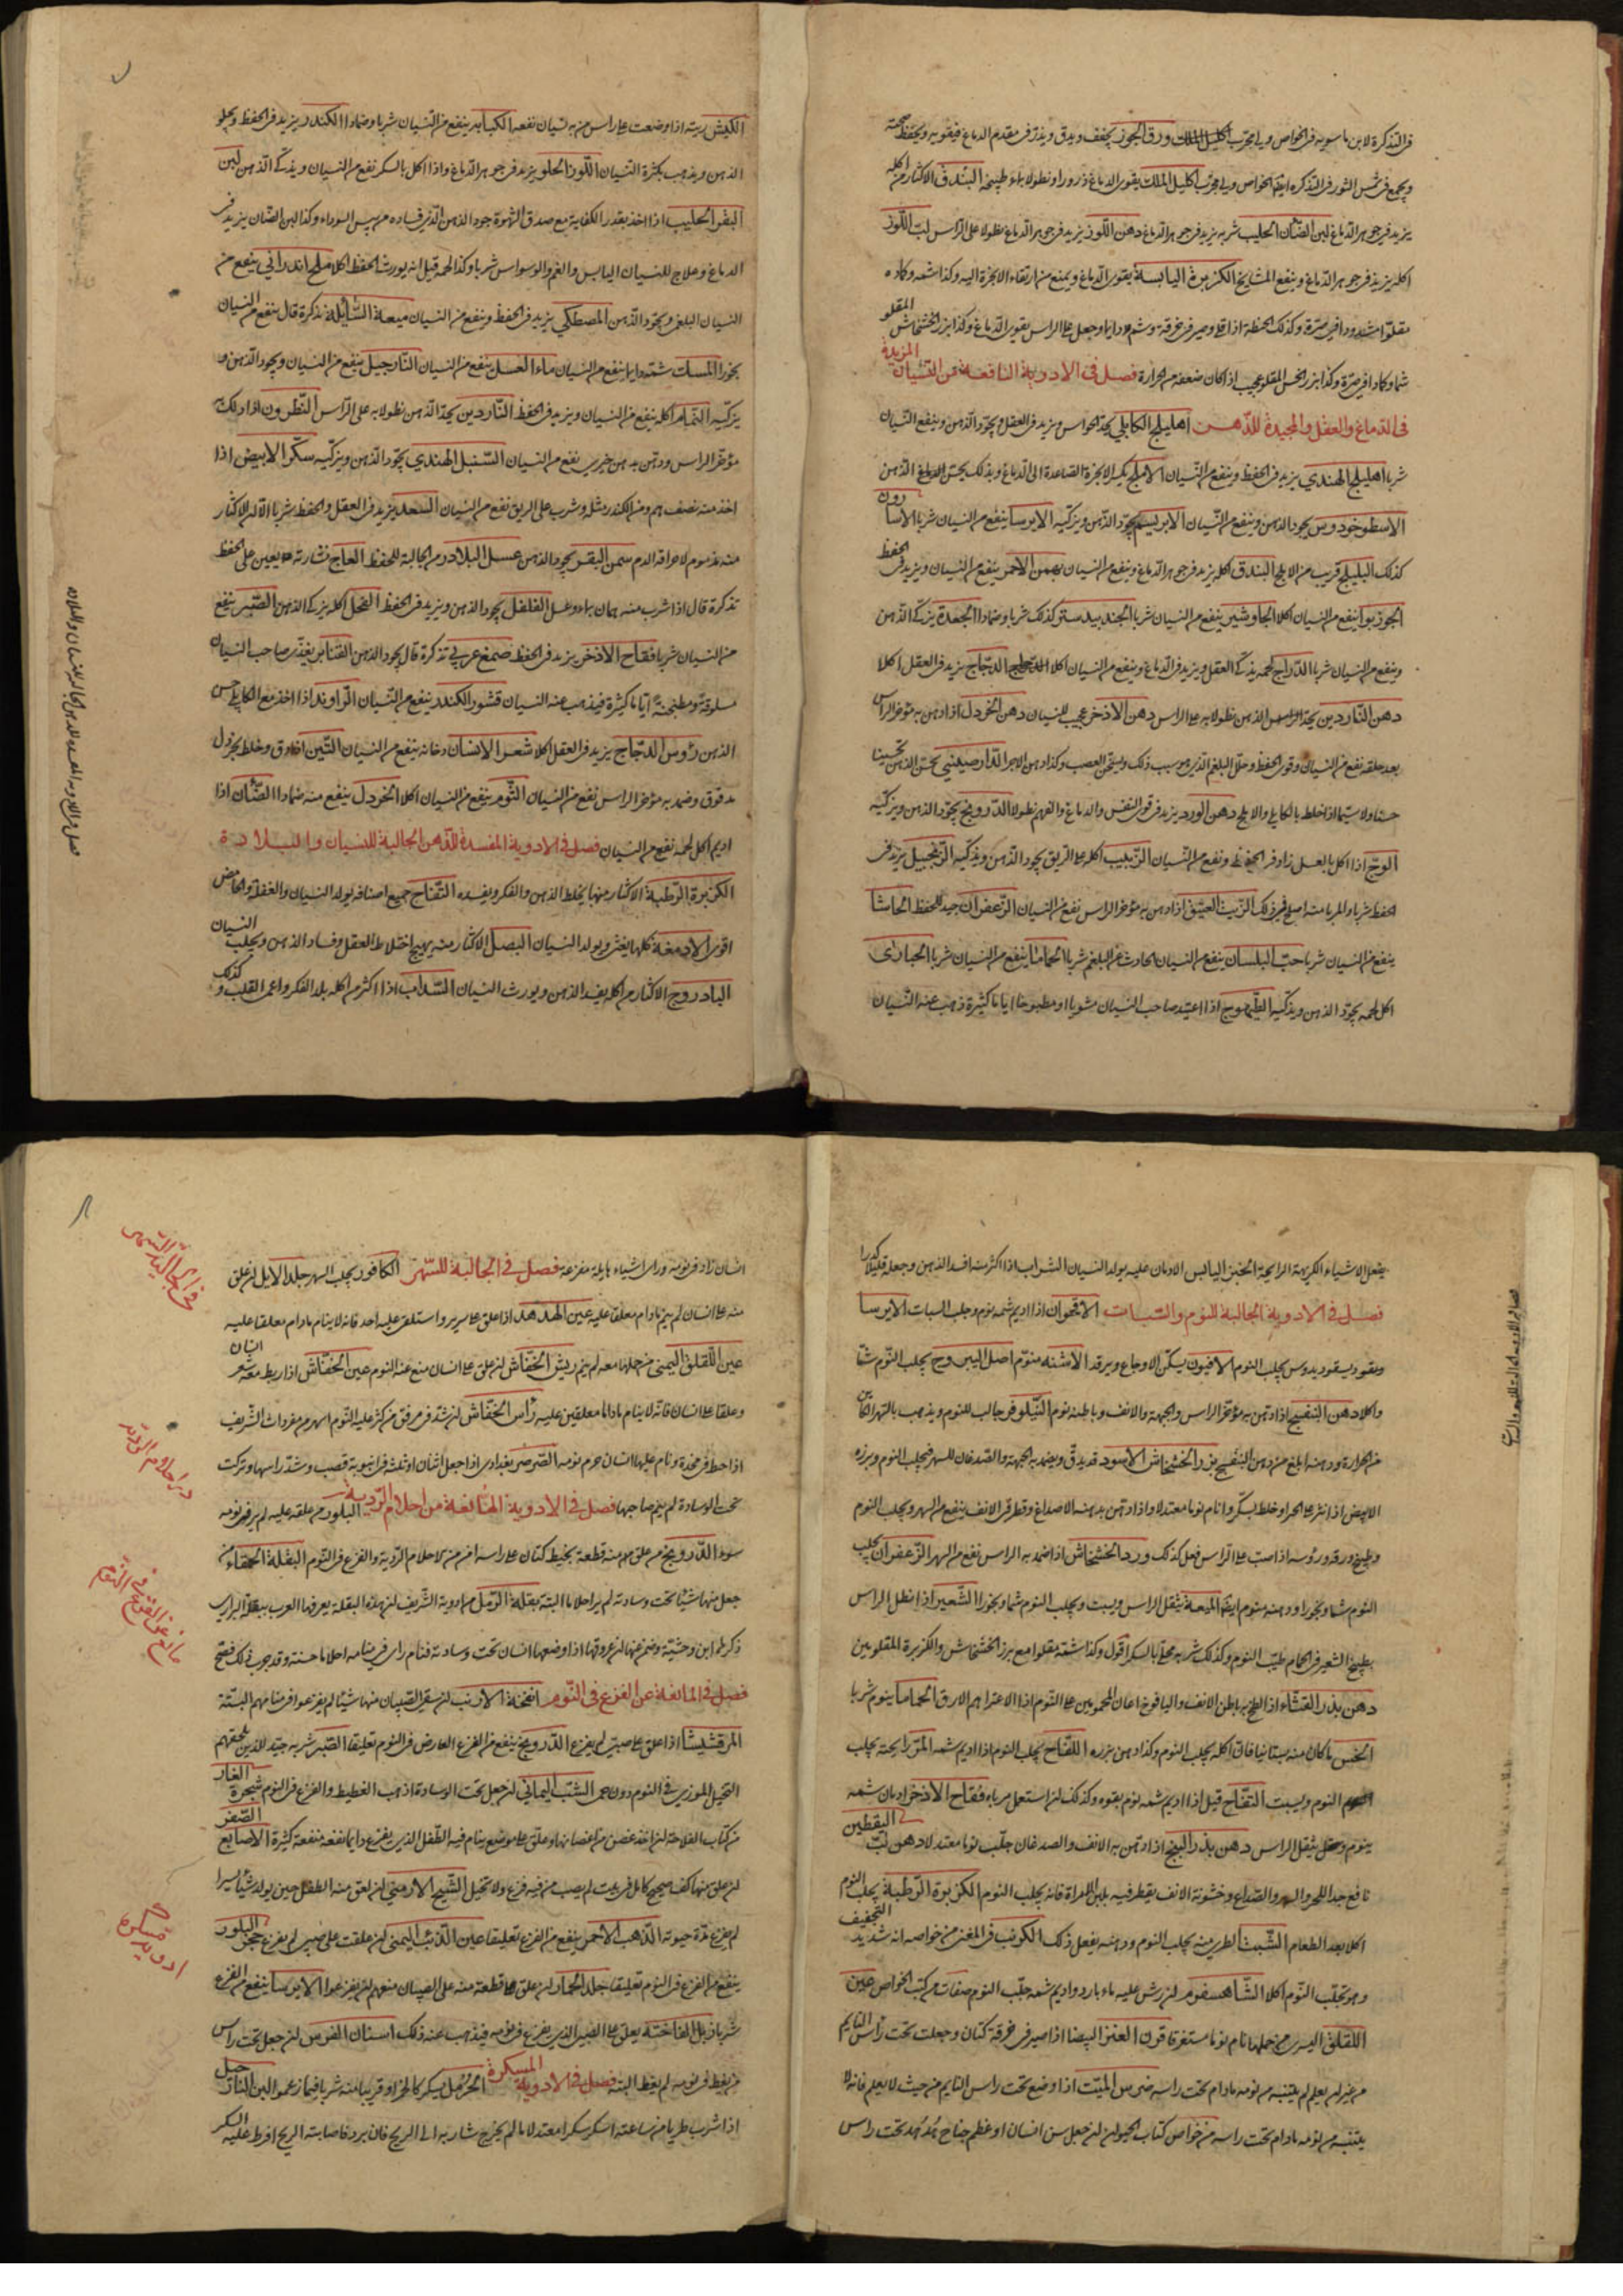 في التذكرة لابن ماسويه في الخواص ورق الجوز يجفف ويدق ويذر في مقدم الدماغ فيقويه ويحفظ صحته
اكليل الملك يقوي الدماغ ذرورا ونطولا بماء طبيخه البندق الاكثار من اكله
يزيد في جوهر الدماغ لبن الضأن الحليب شربه يزيد في جوهر الدماغ دهن اللوز يزيد في جوهر الدماغ نطولا على الراس لب اللوز
اكله يزيد في جوهر الدماغ وينفع المشايخ الكزبرة اليابسة يقوي الدماغ ويمنع من ارتقاء الابخرة اليه وكذا شمه وكاده
وصير في خرقة وشم دايما وجعل على الراس يقوي الدماغ وكذا بزر الخشخاش المقلو
وكذا بزر الخس المقلو عجيب اذا كان ضعفه من الحرارة فصل في الادوية النافعة من النسيان المزيدة
في الدماغ والعقل والمجيدة للذهن اهليلج الكابلي يحد الحواس ويزيد في العقل ويجود الذهن وينفع النسيان
شربا اهليلج الهندي يزيد في الحفظ وينفع من النسيان الاملج يكسر الابخرة الصاعدة الى الدماغ وبذلك يحسن الذهن
الاسطوخودوس يجود الذهن وينفع من النسيان الابريسم يجود الذهن ويزكيه الايرسا ينفع من النسيان شربا الاسارون
كذلك البليلج قريب من الاملج البندق اكله يزيد في جوهر الدماغ وينفع من النسيان بهمن الاحمر ينفع من النسيان ويزيد في الحفظ
الجوز بوا ينفع من النسيان اكلا الجاوشير ينفع من النسيان شربا الجندبيدستر كذلك شربا وضمادا الجعدة يزكي الذهن
وينفع من النسيان شربا الدراج لحمه يذكي العقل ويزيد في الدماغ وينفع من النسيان اكلا الدجاج يزيد في العقل اكلا
دهن الناردين يحد الذهن نطولا به على الراس دهن الاذخر عجيب للنسيان دهن الخردل اذا دهن به مؤخر الراس
بعد حلقه نفع من النسيان وقوى الحفظ وحلل البلغم الذي هو سبب ذلك ويسخن العصب وكذا دهن الاجر الدارصيني يحسن الذهن تحسينا
حسنا ولا سيما اذا خلط بالكابلي والاملج دهن الورد يزيد في قوى النفس والدماغ والفهم نطولا الدرونج يجود الذهن ويزكيه
الوج اذا اكل بالعسل زاد في الحفظ ونفع من النسيان الزبيب اكله على الريق يجود الذهن ويذكيه الزنجبيل يزيد في
الحفظ شربا والمربا منه اصلح في ذلك الزيت العتيق اذا دهن به مؤخر الراس نفع من النسيان الزعفران جيد للحفظ الحاشا
ينفع من النسيان شربا حب البلسان ينفع من النسيان الحادث عن البلغم شربا الحماما ينفع من النسيان شربا الحبارى
اكل لحمه يجود الذهن ويذكيه الطيهوج اذا اعتيد صاحب النسيان مشويا او مطبوخا اياما كثيرة ذهب عنه النسيان
الكبش ريته اذا وضعت على راس من به نسيان نفعه الكبابه ينفع من النسيان شربا وضمادا الكندر يزيد في الحفظ ويجلو
الذهن ويذهب بكثرة النسيان اللوز الحلو يزيد في جوهر الدماغ واذا اكل بالسكر نفع من النسيان ويذكي الذهن لبن
البقر الحليب اذا اخذ بقدر الكفاية مع صدق الشهوة جود الذهن الذي فساده من يبس السوداء وكذا لبن الضان يزيد في
الدماغ وعلاج للنسيان اليابس والغم والوسواس شربا وكذا لحمه وقيل انه يورث الحفظ اكلا ملح اندراني ينفع من
النسيان البلغمي ويجود الذهن المصطكي يزيد في الحفظ وينفع من النسيان ميعة السائلة تذكرة قال ينفع من النسيان
بخورا المسك شمه دايما ينفع من النسيان ماء العسل ينفع من النسيان النارجيل ينفع من النسيان ويجود الذهن و
يزكيه النمام اكله ينفع من النسيان ويزيد في الحفظ الناردين يحد الذهن نطولا به على الراس النطرون اذا دلك به
مؤخر الراس ودهن بدهن خيري نفع من النسيان السنبل الهندي يجود الذهن ويزكيه سكر الابيض اذا
اخذ منه نصف درهم ومن الكندر مثله وشرب على الريق نفع من النسيان السعد يزيد في العقل والحفظ شربا الا ان الاكثار
منه مذموم لاحراقه الدم سمن البقر يجود الذهن عسل البلادر من الجالبة للحفظ العاج نشارته يعين على الحفظ
تذكرة قال اذا شرب منه بماء وعسل الفلفل يجود الذهن ويزيد في الحفظ النحل اكله يزكي الذهن الصبر ينفع
من النسيان شربا فقاح الاذخر يزيد في الحفظ صمغ عربي تذكرة قال يجود الذهن القنابر يغذى صاحب النسيان
مسلوقة ومطجنة اياما كثيرة فيذهب عنه النسيان قشور الكندر ينفع من النسيان الراوند اذا اخذ مع الكابلي حسن
الذهن رؤس الدجاج يزيد في العقل اكلا شعر الانسان دخانه ينفع من النسيان التين اذا دق وخلط بخردل
مدقوق وضمد به مؤخر الراس نفع من النسيان الثوم ينفع من النسيان اكلا الخردل ينفع منه ضمادا الضأن اذا
اديم اكل لحمه نفع من النسيان فصل في الادوية المفسدة للذهن الجالبة للنسيان والبلادة
الكزبرة الرطبة الاكثار منها يخلط الذهن والفكر ويفسده التفاح جميع اصنافه يولد النسيان والغفلة والحامض
اقوى الادمغة كلها يغثي ويولد النسيان البصل الاكثار منه يهيج اختلاط العقل وفساد الذهن ويجلب النسيان
الباذروج الاكثار من اكله يفسد الذهن ويورث النسيان السذاب اذا اكثر من اكله بلد الفكر واعمى القلب وكذلك
يفعل الاشياء الكريهة الرايحة الخبز اليابس الادمان عليه يولد النسيان الشراب اذا اكثر منه افسد الذهن وجعله قليلا كدرا
فصل في الادوية الجالبة للنوم والسبات الاقحوان اذا اديم شمه نوم وجلب السبات الايرسا
يجلب النوم الافيون يسكن الاوجاع ويرقد الاشنة منوم اصل اليبروح يجلب النوم شما
واكلا دهن البنفسج اذا دهن به مؤخر الراس والجبهة والانف وباطنه نوم النيلوفر جالب للنوم ويذهب بالسهر الكاين
من الحرارة ودهنه ابلغ من دهن البنفسج بزر الخشخاش الاسود قد يدق ويضمد به الجبهة والصدغان للسهر فيجلب النوم وبزره
الابيض اذا نثر على الخبز او خلط بسكر وانام نوما معتدلا واذا دهن بدهنه الاصداغ وقطر في الانف ينفع من السهر ويجلب النوم
وطبيخ ورقه ورؤسه اذا صب على الراس فعل كذلك ورد الخشخاش اذا ضمد به الراس نفع من السهر الزعفران يجلب
النوم شما وبخورا ودهنه منوم ايضا الميعة يثقل الراس ويسبت ويجلب النوم شما وبخورا الشعير اذا نطل الراس
بطبيخ الشعير في الحمام طيب النوم وكذلك شربه محلى بالسكر اقول وكذا شمه مقلوا مع بزر الخشخاش والكزبرة المقلوين
دهن بذر القثاء اذا لطخ به باطن الانف واليافوخ اعان المحمومين على النوم اذا اعتراهم الارق الحماما ينوم شربا
الخس ما كان منه بستانيا فان اكله يجلب النوم وكذا دهن بزره اللفاح يجلب النوم اذا اديم شمه المر رايحته يجلب
النوم ويسبت التفاح قيل اذا اديم شمه نوم بقوة وكذلك ان استعمل مرباه فقاح الاذخر ادمان شمه
ينوم ويثقل الراس دهن بذر البنج اذا دهن به الانف والصدغان جلب نوما معتدلا دهن لب اليقطين
نافع جدا للحر والسهر والصداع وخشونة الانف يقطر فيه بلبن المراة فانه يجلب النوم الكزبرة الرطبة يجلب النوم
اكلا بعد الطعام الشبت الطري منه يجلب النوم ودهنه يفعل ذلك الكرنب في المغني من خواصه انه شديد التجفيف
وهو يجلب النوم اكلا الشاهسفرم ان رش عليه ماء بارد واديم شمه جلب النوم صفات مركبة الخواص عين
اللقلق اليسرى من حملها نام نوما مستغرقا قرن العنز البيضا اذا صير في خرقة كتان وجعلت تحت راس النايم
من غير ان يعلم لم ينتبه من نومه مادام تحت راسه ضرس الميت اذا وضع تحت راس النايم من حيث لا يعلم فانه لا
ينتبه من نومه مادام تحت راسه من خواص كتاب الحيوان ان جعل سن انسان او عظم جناح هدهد تحت راس
انسان زاد في نومه وراى اشياء هايلة مفزعة فصل في الجالبة للسهر الكافور يجلب السهر جلد الايل ان علق
منه على انسان لم ينم مادام معلقا عليه عين الهدهد اذا علق على سرير واستلقى عليه احد فانه لا ينام مادام معلقا عليه
عين اللقلق اليمنى من حملها معه لم ينم ريش الخفاش ان علق على انسان منع عنه النوم عين الخفاش اذا ربط مع شعر انسان
وعلقا على انسان فانه لا ينام ماداما معلقين عليه راس الخفاش ان شد في مرفق من كثر عليه النوم اسهره من مفردات الشريف
اذا حط في مخدة ونام عليها انسان حرم نومه الصرصر بغدادي اذا جعل اثنان او ثلثة في انبوبة قصب وشد راسها وتركت
تحت الوسادة لم ينم صاحبها فصل في الادوية المانعة من احلام الردية البلور من علقه عليه لم ير في نومه
سوءا الدرونج من علق منه قطعة بخيط كتان على راسه امن من الاحلام الردية والفزع في النوم البقلة الحمقاء من
جعل منها شيئا تحت وسادته لم ير احلاما البتة بقلة الرمل من ادوية الشريف ان هذه البقلة يعرفها العرب ببقلة البراري
ذكرها ابن وحشية اذا وضعها انسان تحت وسادته فنام راى في منامه احلاما حسنة وقد جرب ذلك فصح
فصل في المانعة عن الفزع في النوم انفحة الارنب ان سقي الصبيان منها شيئا لم يفزعوا في منامهم البتة
المرقشيشا اذا علق على صبي لم يفزع الدرونج ينفع من الفزع العارض في النوم تعليقا الصبر شربه جيد للذين يلحقهم
التخيل الموذي في النوم دون حمى الشب اليماني ان جعل تحت الوسادة اذهب الغطيط والفزع في النوم شجرة الغار
من كتاب الفلاحة ان اخذ غصن من اغصانها وعلق على موضع ينام فيه الطفل الذي يفزع دايما نفعه منفعة كثيرة الاصابع الصفر
ان علق منها كف صحيح كامل في بيت لم يصب من فيه فزع ولا تخيل الشيح الارمني ان لعق منه الطفل حين يولد شيئا يسيرا
لم يفزع مدة حيوته الذهب الاحمر ينفع من الفزع تعليقا عين الذئب اليمنى ان علقت على صبي لم يفزع حجر البلور
ينفع من الفزع في النوم تعليقا جلد الحمار ان علق قطعة منه على الصبيان منعهم ان يفزعوا الايرسا ينفع من الفزع
شربا ذبل الفاختة يعلق على الصبي الذي يفزع في نومه فيذهب عنه ذلك اسنان الفرس ان جعل تحت راس
من يغط في نومه لم يغط البتة فصل في الادوية المسكرة الحرمل يسكر كالخمر او قريبا منه شربا فيما زعموا لبن النارجيل
اذا شرب طريا من ساعته اسكر سكرا معتدلا ما لم يخرج شاربه الى الريح فان برد فاصابته الريح افرط عليه السكر